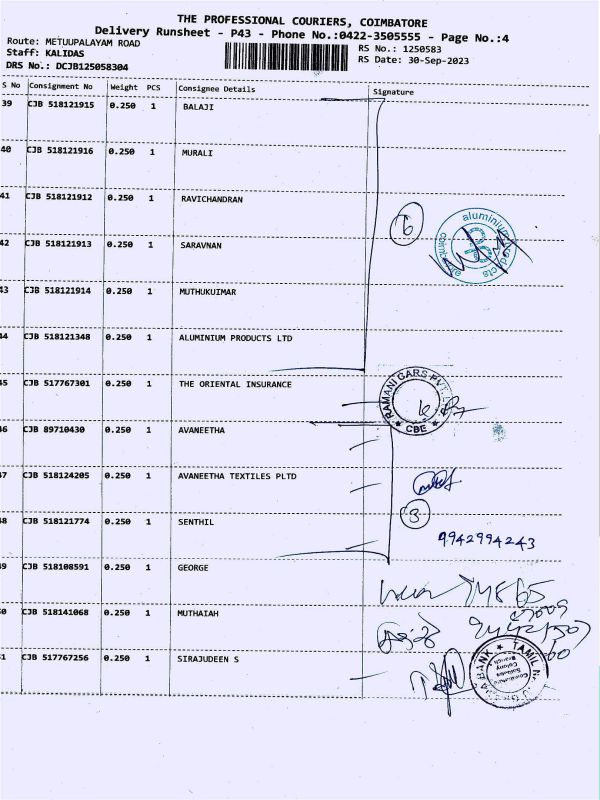 THE PROFESSIONAL COURIERS, COIMBATORE
Delivery Runsheet - P43 - Phone No.:0422-3505555 - Page No.:4
Route: METUUPALAYAM ROAD
RS No.: 1250583
Staff: KALIDAS
RS Date: 30-Sep-2023
DRS No.: DCJB125058304
S No Consignment No Weight PCS Consignee Details Signature
39 CJB 518121915 0.250 1 BALAJI
40 CJB 518121916 0.250 1 MURALI
41 CJB 518121912 0.250 1 RAVICHANDRAN
6
aluminium products
coimbatore
42 CJB 518121913 0.250 1 SARAVNAN
43 CJB 518121914 0.250 1 MUTHUKUIMAR
44 CJB 518121348 0.250 1 ALUMINIUM PRODUCTS LTD
45 CJB 517767301 0.250 1 THE ORIENTAL INSURANCE
RAMANI CARS PVT.
CBE
46 CJB 89710430 0.250 1 AVANEETHA
47 CJB 518124205 0.250 1 AVANEETHA TEXTILES PLTD
3
48 CJB 518121774 0.250 1 SENTHIL
9942994243
49 CJB 518108591 0.250 1 GEORGE
50 CJB 518141068 0.250 1 MUTHAIAH
51 CJB 517767256 0.250 1 SIRAJUDEEN S
BANK ★ TAMIL
Colony
Branch